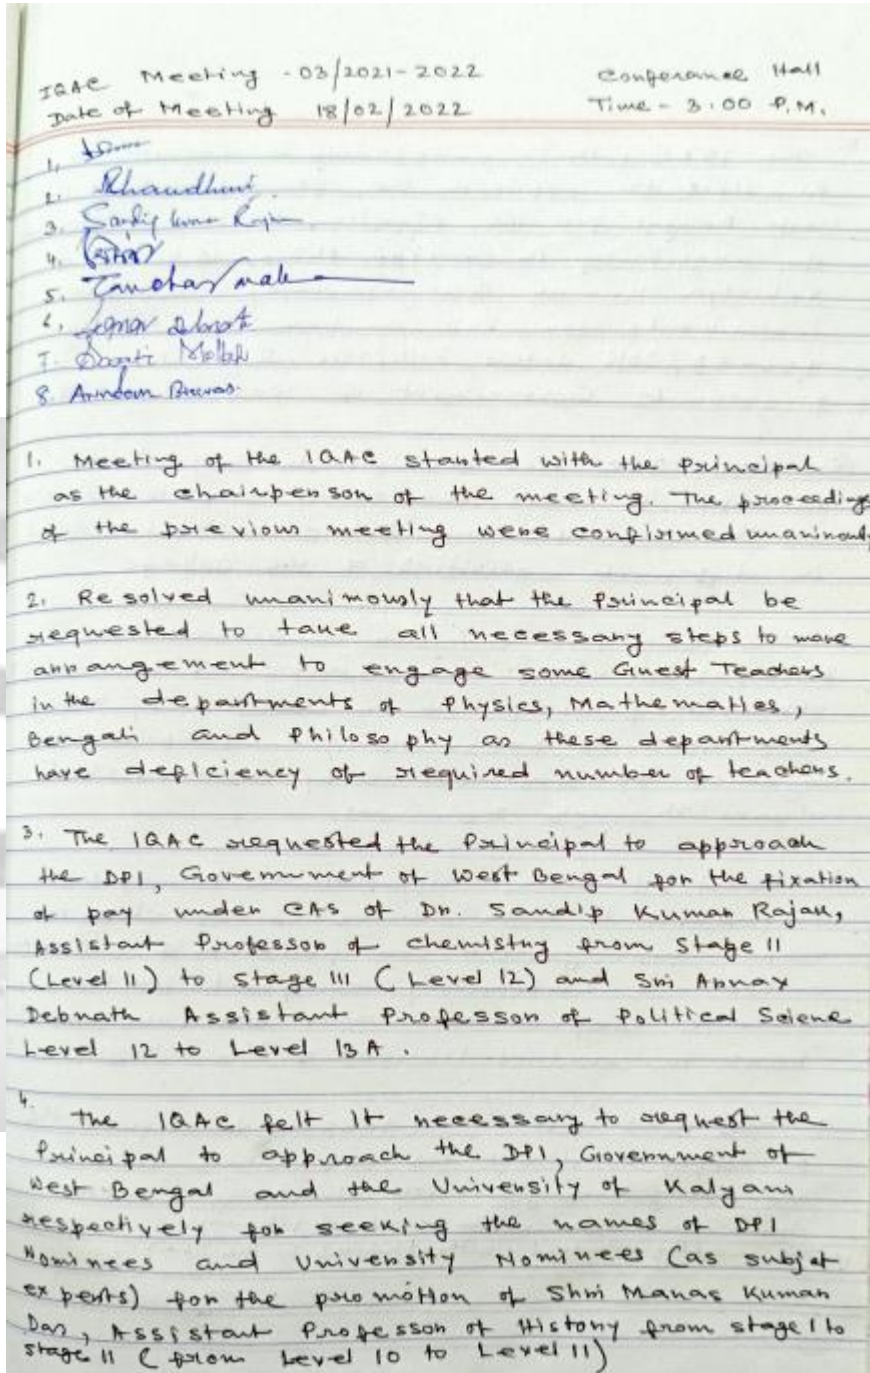 IQAC Meeting - 03/2021-2022 Conferance Hall
Date of Meeting 18/02/2022 Time - 3:00 P.M.
1.
2. Chaudhuri
3. Sandip Kumar Rajak
4.
5.
6.
7. Mollah
8. Arindam Biswas
1. Meeting of the IQAC started with the Principal
as the chairperson of the meeting. The proceedings
of the previous meeting were confirmed unanimously
2. Resolved unanimously that the Principal be
requested to take all necessary steps to make
arrangement to engage some Guest Teachers
in the departments of Physics, Mathematics,
Bengali and Philosophy as these departments
have deficiency of required number of teachers.
3. The IQAC requested the Principal to approach
the DPI, Government of West Bengal for the fixation
of pay under CAS of Dr. Sandip Kumar Rajak,
Assistant Professor of Chemistry from Stage II
(Level 11) to Stage III (Level 12) and Sri
Debnath Assistant Professor of Political Sciene
Level 12 to Level 13A.
4. The IQAC felt it necessary to request the
Principal to approach the DPI, Government of
West Bengal and the University of Kalyani
respectively for seeking the names of DPI
Nominees and University Nominees (as subjet
experts) for the promotion of Shri Manas Kumar
Das, Assistant Professor of History from stage I to
stage II (from Level 10 to Level 11)